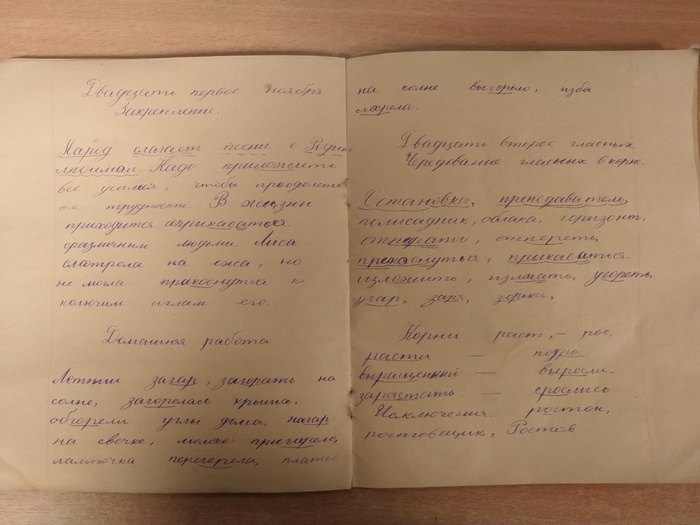 Двадцать первое ноября
Закрепление.
Народ слагает песни о Родине
любимой. Надо приложить
все усилия, чтобы преодолеть
их трудности. В жизни
приходится соприкасаться
с различным людьми. Лиса
смотрела на ежа, но
не могла прикоснуться к
колючим иглам его.
Домашняя работа
Летний загар, загорать на
солнце, загорелась крыша,
обгорели углы дома, нагар
на свечке, молоко пригорело,
лампочка перегорела, платье
на солне выгорело, изба
сгорела.
Двадцать второе
Чередование гласных в корне.
Установка, преподаватель,
полисадник, облака, горизонт.
отпереть,
прикоснуться, прикасаться
изложить, излагать, угореть,
угар, заря, зорька,
Корни раст, - рос.
расти —
выращенный — выросли.
зарастать — срослись
Исключения. росток,
ростовщик, Ростов